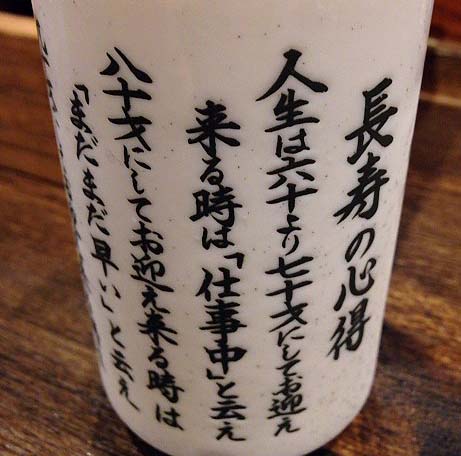 長寿の心得
人生は六十より七十才にしてお迎え
来る時は「仕事中」と云え
八十才にしてお迎え来る時は
「まだまだ早い」と云え